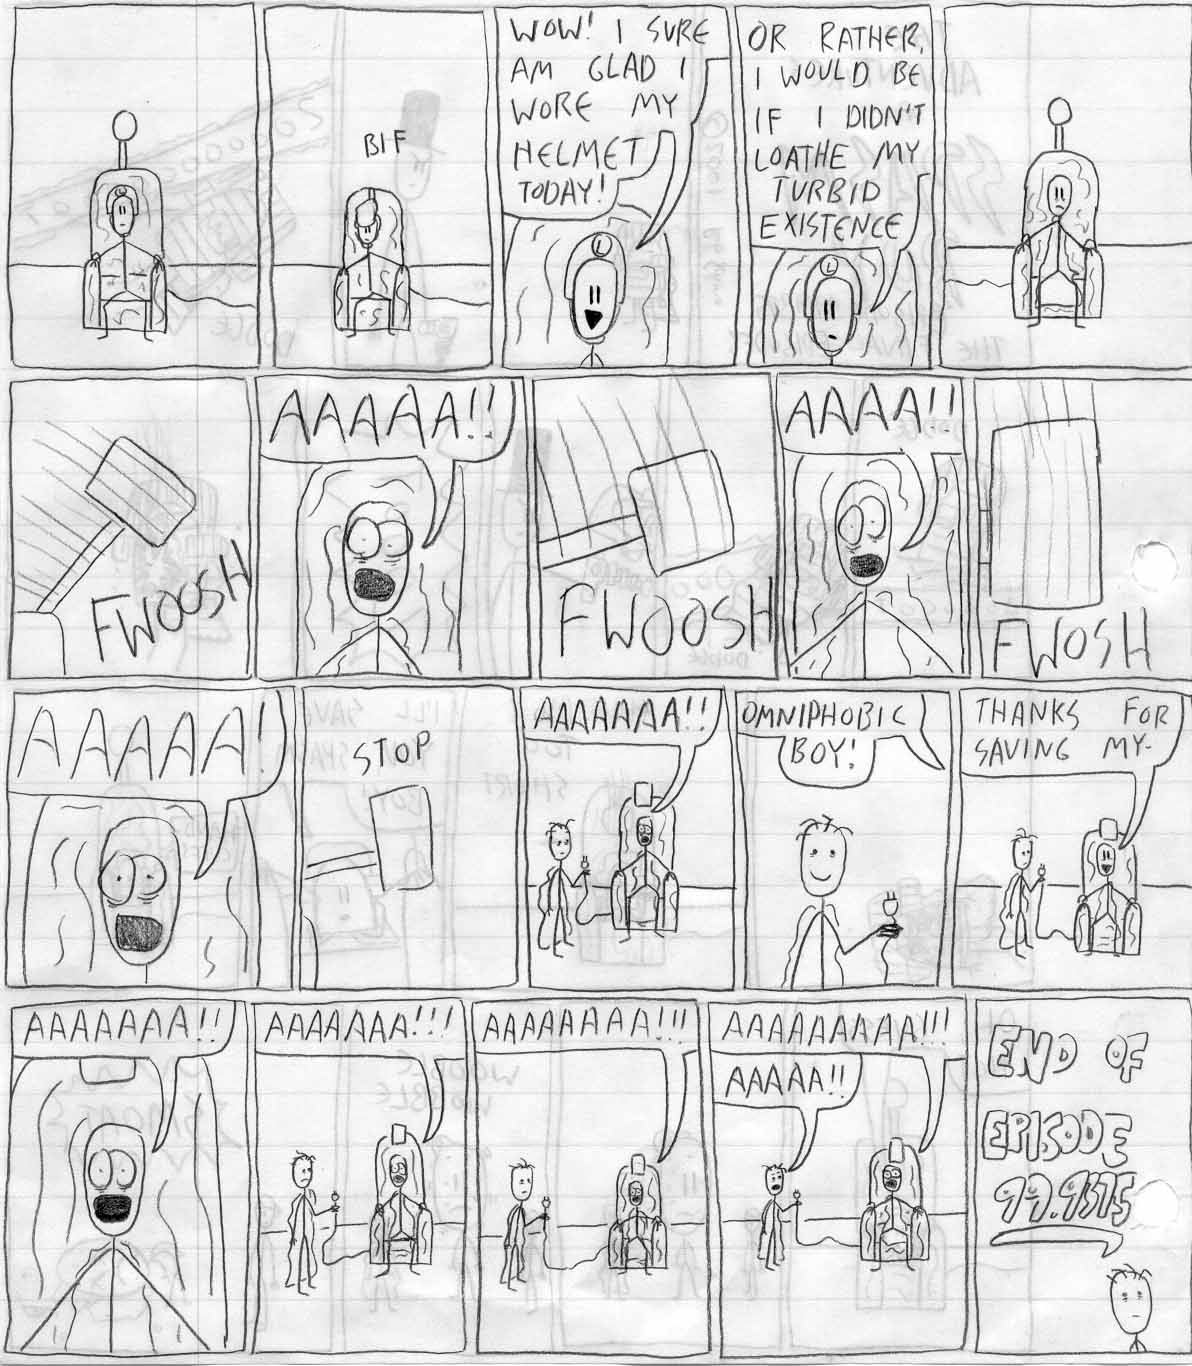 BIF
WOW! I SURE
AM GLAD I
WORE MY
HELMET
TODAY!
L
OR RATHER,
I WOULD BE
IF I DIDN'T
LOATHE MY
TURBID
EXISTENCE
L
FWOOSH
AAAAA!!
FWOOSH
AAAA!!
FWOSH
AAAAA!
STOP
AAAAAAA!!
OMNIPHOBIC
BOY!
THANKS FOR
SAVING MY-
AAAAAAA!!
AAAAAAA!!!
AAAAAAAA!!!
AAAAAAAAA!!!
AAAAA!!
END OF
EPISODE
99.9375